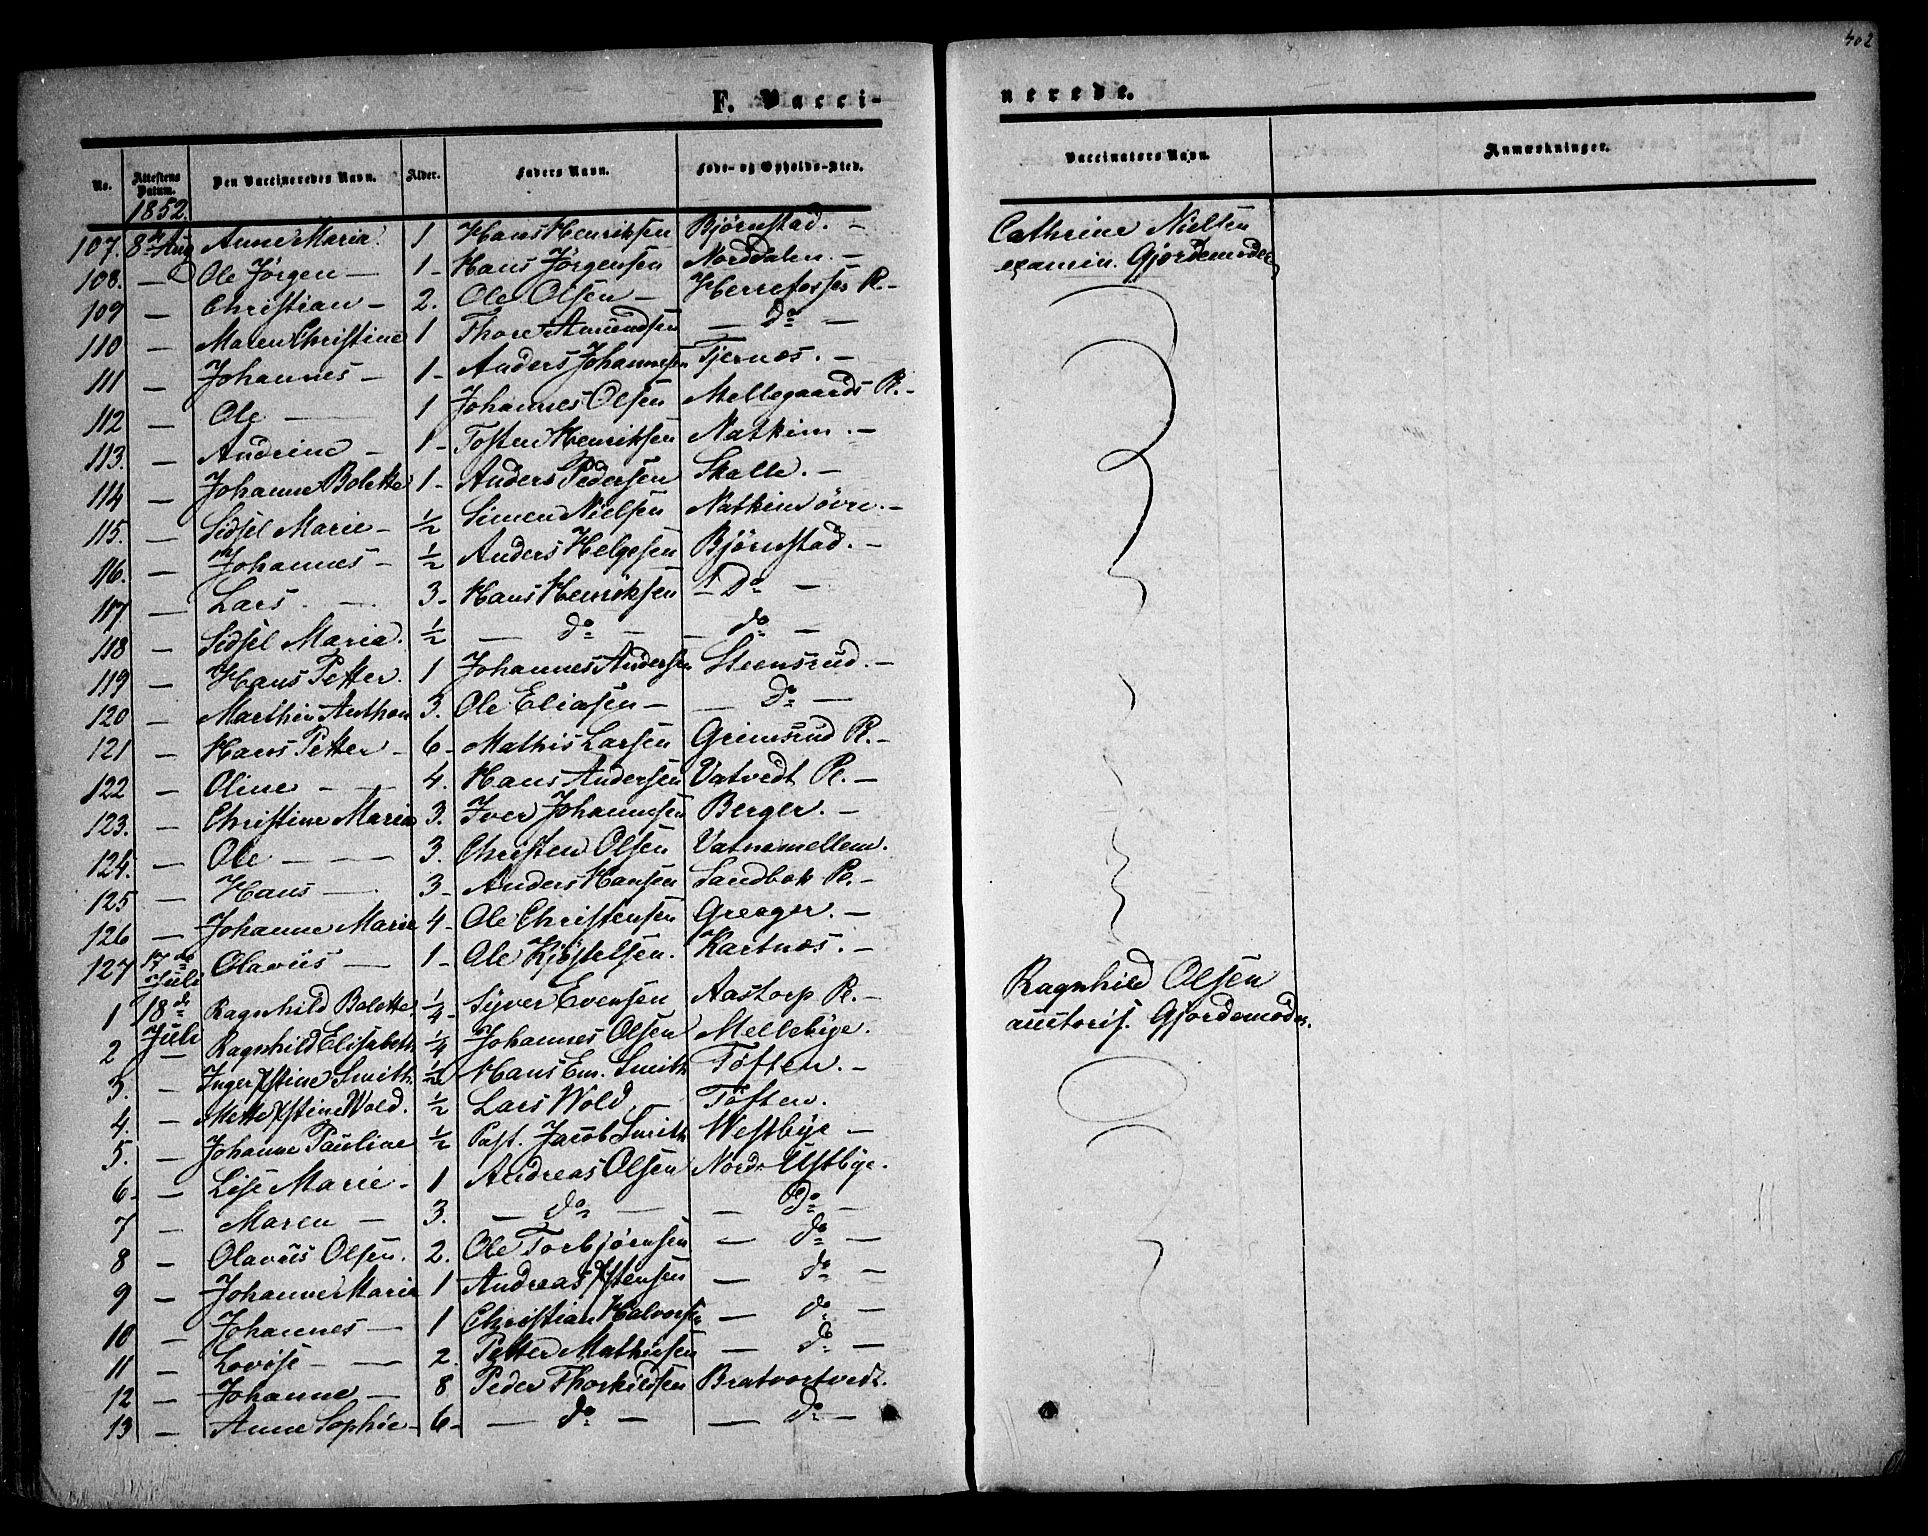 402
F. Vacci-
nerede.
No. Attestens Datum. Den Vaccineredes Navn. Alder. Faders Navn. Føde- og Opholds-Sted. Vaccinateurs Navn. Anmærkninger.
1852.
107. 8de Aug Anne Maria. 1 Hans Henriksen Bjørnstad. — Cathrine Nielsen
108. — Ole Jørgen — 1 - Hans Jørgensen Norddalen. — examin. Gjordemoder
109 — Christian — 2. Ole Olsen — Herrefosser P. -
110 — Maren Christine 1 Thore Amundsen — do —
111 — Johannes — 1 - Anders Johannesen Tjernæs. —
112 — Ole — 1 Johannes Olsen Mellegaards P. -
113. — Andrine — 1 - Tosten Henriksen Natkim. —
114 — Johanne Bolette 1 - Anders Pedersen Skalle. —
115. — Sidsel Marie — ½ Simen Nielsen Natkim øvre. —
116. — Johannes — ½ Anders Helgesen Bjørnstad. —
117 — Lars. — 3 - Hans Henriksen — Do —
118 — Sidsel Maria. ½ — do — — do —
119 — Hans Petter. 1 Johannes Andersen Steensrud. —
120 — Marthin Anthon 3. Ole Eliasen — — Do —
121 — Hans Petter — 6 - Mathis Larsen Grimsrud P. -
122 — Oline — 4. Hans Andersen Vatvedt P. —
123. — Christine Maria 3. Iver Johannesen Berger. —
124. — Ole — — 3. Christen Olsen Vatnemellem.
125 — Hans — 3 - Anders Hansen Sandbok P. —
126 — Johanne Marie 4 - Ole Christensen Greager. —
127 17de Juli Olavus — 1 - Ole Kjøstelsen. Kartnæs. — Ragnhild Olsen
1 18de Juli Ragnhild Bolette. ¼ - Syver Evensen Aastorp P. — auctoris. Gjordemoder.
2 — Ragnhild Elisabeth ¼ Johannes Olsen Mellebye.
3. — Inger Xstine Smith. ½ Hans Em. Smith Tøften. —
4. — Mette Xstine Wold. ½ Lars Wold Tøften.
5. — Johanne Pauline ½ Past. Jacob Smith Westbye —
6 - — Lise Marie. 1 Andreas Olsen Nordr Ustbye.
7 — Maren — 3. — do — — Do —
8 — Olavus Olsen. 2. Ole Torbjørnsen — do —
9 — Johanne Marie 1 Andreas Xstensen — do —
10 — Johannes — 1 Christian Halvorsen — do —
11 — Lovise — 2. Petter Mathisen — do —
12 — Johanne — 8 Peder Thorkildsen Bratvortvedt.
13 — Anne Sophie — 6 - — do — — Do —